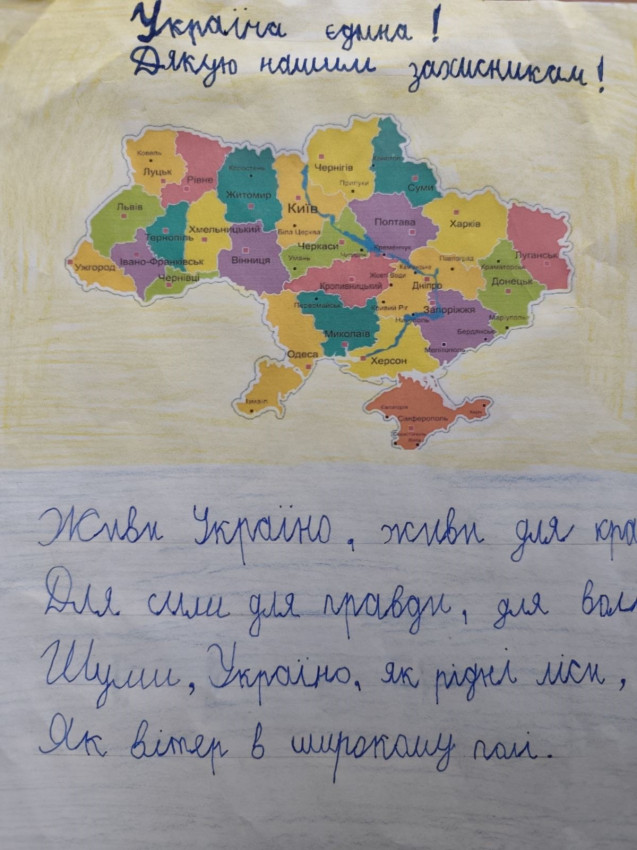 Україна єдина!
Дякую нашим захисникам!
Ковель
Луцьк
Рівне
Житомир
Чернігів
Прилуки
Суми
Київ
Львів
Тернопіль
Хмельницький
Біла Церква
Полтава
Харків
Черкаси
Умань
Вінниця
Івано-Франківськ
Ужгород
Чернівці
Луганськ
Павлоград
Краматорськ
Донецьк
Дніпро
Жовті Води
Кропивницький
Кривий Ріг
Запоріжжя
Маріуполь
Бердянськ
Первомайськ
Миколаїв
Одеса
Херсон
Ізмаїл
Сімферополь
Живи Україно, живи для кра
Для сили для правди, для вол
Шуми, Україно, як рідні ліси,
Як вітер в широкому полі.